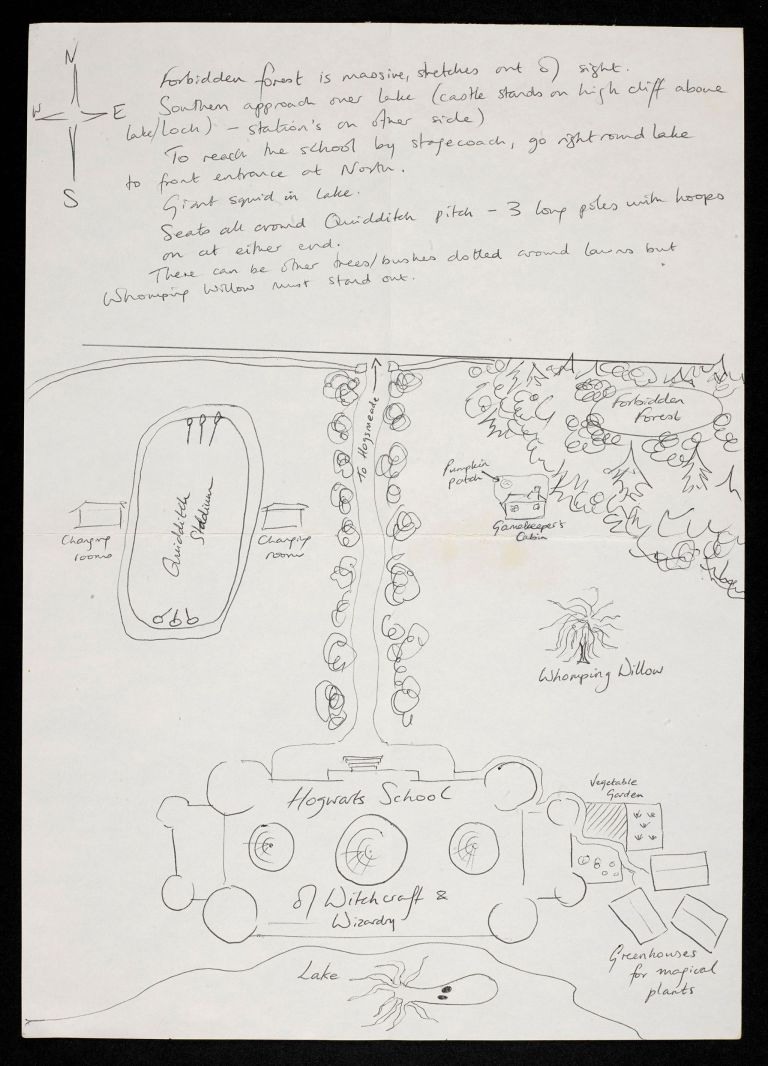 N
W E
S
Forbidden forest is massive, stretches out of sight.
Southern approach over lake (castle stands on high cliff above
lake/loch) – station's on other side)
To reach the school by stagecoach, go right round lake
to front entrance at North.
Giant squid in lake.
Seats all around Quidditch pitch – 3 long poles with hoops
on at either end.
There can be other trees/bushes dotted around lawns but
Whomping Willow must stand out.
To Hogsmeade
Forbidden
Forest
Pumpkin
patch
Gamekeeper's
Cabin
Quidditch
Stadium
Changing
rooms
Changing
rooms
Whomping Willow
Vegetable
Garden
Hogwarts School
of Witchcraft &
Wizardry
Greenhouses
for magical
plants
Lake